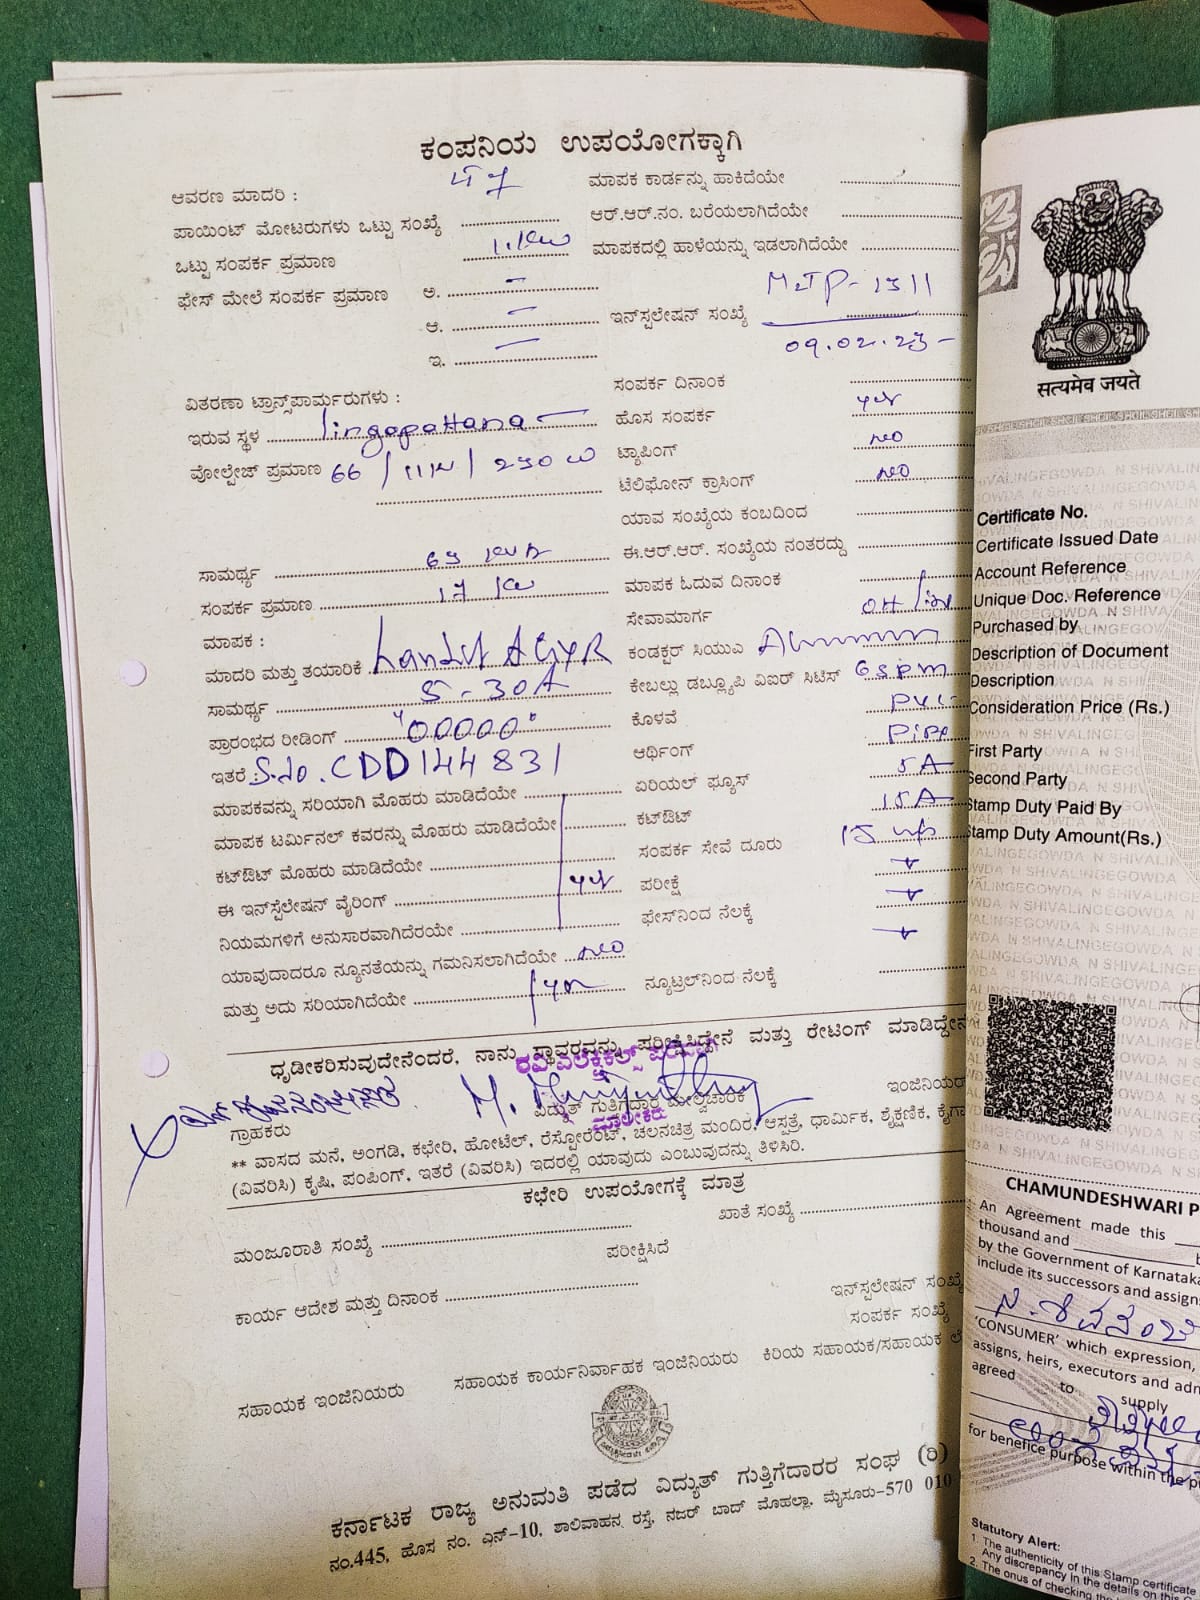 ಕಂಪನಿಯ ಉಪಯೋಗಕ್ಕಾಗಿ
ಆವರಣ ಮಾದರಿ :
ಮಾಪಕ ಕಾರ್ಡನ್ನು ಹಾಕಿದೆಯೇ
ಪಾಯಿಂಟ್ ಮೋಟರುಗಳು ಒಟ್ಟು ಸಂಖ್ಯೆ
ಆರ್.ಆರ್.ನಂ. ಬರೆಯಲಾಗಿದೆಯೇ
ಒಟ್ಟು ಸಂಪರ್ಕ ಪ್ರಮಾಣ
ಮಾಪಕದಲ್ಲಿ ಹಾಳೆಯನ್ನು ಇಡಲಾಗಿದೆಯೇ
ಫೇಸ್ ಮೇಲೆ ಸಂಪರ್ಕ ಪ್ರಮಾಣ ಅ. –
ಆ. –
ಇನ್‌ಸ್ಟಲೇಷನ್ ಸಂಖ್ಯೆ MJP-1311
ಇ. –
09.02.23
ಸಂಪರ್ಕ ದಿನಾಂಕ
ವಿತರಣಾ ಟ್ರಾನ್ಸ್‌ಫಾರ್ಮರುಗಳು :
ಇರುವ ಸ್ಥಳ lingapattana
ಹೊಸ ಸಂಪರ್ಕ yes
ವೋಲ್ಟೇಜ್ ಪ್ರಮಾಣ 66 / 11 / 230
ಟ್ಯಾಪಿಂಗ್ no
ಟೆಲಿಫೋನ್ ಕ್ರಾಸಿಂಗ್ no
ಯಾವ ಸಂಖ್ಯೆಯ ಕಂಬದಿಂದ
ಸಾಮರ್ಥ್ಯ 63 KVA
ಈ.ಆರ್.ಆರ್. ಸಂಖ್ಯೆಯ ನಂತರದ್ದು
ಸಂಪರ್ಕ ಪ್ರಮಾಣ 17 Kw
ಮಾಪಕ ಓದುವ ದಿನಾಂಕ
ಮಾಪಕ :
ಸೇವಾಮಾರ್ಗ OH /
ಮಾದರಿ ಮತ್ತು ತಯಾರಿಕೆ Landis & GYR
ಕಂಡಕ್ಟರ್ ಸಿಯುಎ
ಸಾಮರ್ಥ್ಯ 5-30A
ಕೇಬಲ್ಲು ಡಬ್ಲ್ಯೂಪಿ ವಿಐಆರ್ ಸಿಟಿಸ್
ಪ್ರಾರಂಭದ ರೀಡಿಂಗ್ "00000"
ಕೊಳವೆ PVC
ಇತರೆ : S.No. CDD144831
ಆರ್ಥಿಂಗ್ Pipe
ಮಾಪಕವನ್ನು ಸರಿಯಾಗಿ ಮೊಹರು ಮಾಡಿದೆಯೇ
ಏರಿಯಲ್ ಫ್ಯೂಸ್ 5A
ಮಾಪಕ ಟರ್ಮಿನಲ್ ಕವರನ್ನು ಮೊಹರು ಮಾಡಿದೆಯೇ
ಕಟ್‌ಔಟ್ 15A
ಕಟ್‌ಔಟ್ ಮೊಹರು ಮಾಡಿದೆಯೇ
ಸಂಪರ್ಕ ಸೇವೆ ದೂರು 15
ಈ ಇನ್‌ಸ್ಟೆಲೇಷನ್ ವೈರಿಂಗ್ yes
ಪರೀಕ್ಷೆ
ನಿಯಮಗಳಿಗೆ ಅನುಸಾರವಾಗಿದೆರಯೇ
ಫೇಸ್‌ನಿಂದ ನೆಲಕ್ಕೆ
ಯಾವುದಾದರೂ ನ್ಯೂನತೆಯನ್ನು ಗಮನಿಸಲಾಗಿದೆಯೇ no
ಮತ್ತು ಅದು ಸರಿಯಾಗಿದೆಯೇ yes
ನ್ಯೂಟ್ರಲ್‌ನಿಂದ ನೆಲಕ್ಕೆ
ಧೃಡೀಕರಿಸುವುದೇನೆಂದರೆ, ನಾನು ಸ್ಥಾವರವನ್ನು ಪರೀಕ್ಷಿಸಿದ್ದೇನೆ ಮತ್ತು ರೇಟಿಂಗ್ ಮಾಡಿದ್ದೇನೆ
ಗ್ರಾಹಕರು
ವಿದ್ಯುತ್ ಗುತ್ತಿಗೆದಾರ ಮೇಲ್ವಿಚಾರಕ
ಇಂಜಿನಿಯರ್
ಮಾಲೀಕರು
** ವಾಸದ ಮನೆ, ಅಂಗಡಿ, ಕಛೇರಿ, ಹೋಟೆಲ್, ರೆಸ್ಟೋರೆಂಟ್, ಚಲನಚಿತ್ರ ಮಂದಿರ, ಆಸ್ಪತ್ರೆ, ಧಾರ್ಮಿಕ, ಶೈಕ್ಷಣಿಕ, ಕೈಗಾ
(ವಿವರಿಸಿ) ಕೃಷಿ, ಪಂಪಿಂಗ್, ಇತರೆ (ವಿವರಿಸಿ) ಇದರಲ್ಲಿ ಯಾವುದು ಎಂಬುವುದನ್ನು ತಿಳಿಸಿರಿ.
ಕಛೇರಿ ಉಪಯೋಗಕ್ಕೆ ಮಾತ್ರ
ಮಂಜೂರಾತಿ ಸಂಖ್ಯೆ
ಖಾತೆ ಸಂಖ್ಯೆ
ಪರೀಕ್ಷಿಸಿದೆ
ಕಾರ್ಯ ಆದೇಶ ಮತ್ತು ದಿನಾಂಕ
ಇನ್‌ಸ್ಟಲೇಷನ್ ಸಂಖ್ಯೆ
ಸಂಪರ್ಕ ಸಂಖ್ಯೆ
ಸಹಾಯಕ ಇಂಜಿನಿಯರು ಸಹಾಯಕ ಕಾರ್ಯನಿರ್ವಾಹಕ ಇಂಜಿನಿಯರು ಕಿರಿಯ ಸಹಾಯಕ/ಸಹಾಯಕ ಲೆ
ಕರ್ನಾಟಕ ರಾಜ್ಯ ಅನುಮತಿ ಪಡೆದ ವಿದ್ಯುತ್ ಗುತ್ತಿಗೆದಾರರ ಸಂಘ (ರಿ)
ನಂ.445, ಹೊಸ ನಂ. ಎನ್-10, ಶಾಲಿವಾಹನ ರಸ್ತೆ, ನಜರ್ ಬಾದ್ ಮೊಹಲ್ಲಾ, ಮೈಸೂರು-570 010
सत्यमेव जयते
Certificate No.
Certificate Issued Date
Account Reference
Unique Doc. Reference
Purchased by
Description of Document
Description
Consideration Price (Rs.)
First Party
Second Party
Stamp Duty Paid By
Stamp Duty Amount(Rs.)
CHAMUNDESHWARI P
An Agreement made this
thousand and
by the Government of Karnataka
include its successors and assign
'CONSUMER' which expression,
assigns, heirs, executors and adm
agreed to supply
for benefice purpose within the p
Statutory Alert:
1. The authenticity of this Stamp certificate
Any discrepancy in the details on this
2. The onus of checking the